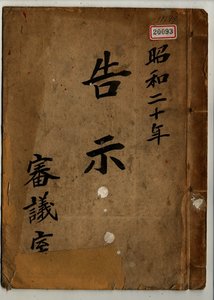 昭和二十年
告示
審議室
20093